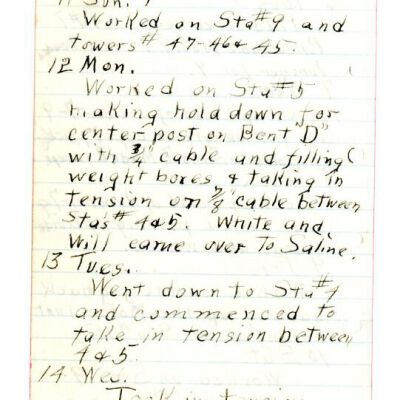 11 Sun.
Worked on Sta#9 and
towers# 47-46& 45.
12 Mon.
Worked on Sta#5
making hold down for
center post on Bent "D"
with 3/4" cable and filling
weight boxes & taking in
tension on 7/8" cable between
Sta's# 4&5. White and
Will came over To Saline.
13 Tues.
Went down to Sta#4
and commenced to
take in tension between
4&5.
14 Wed.
Took in tension